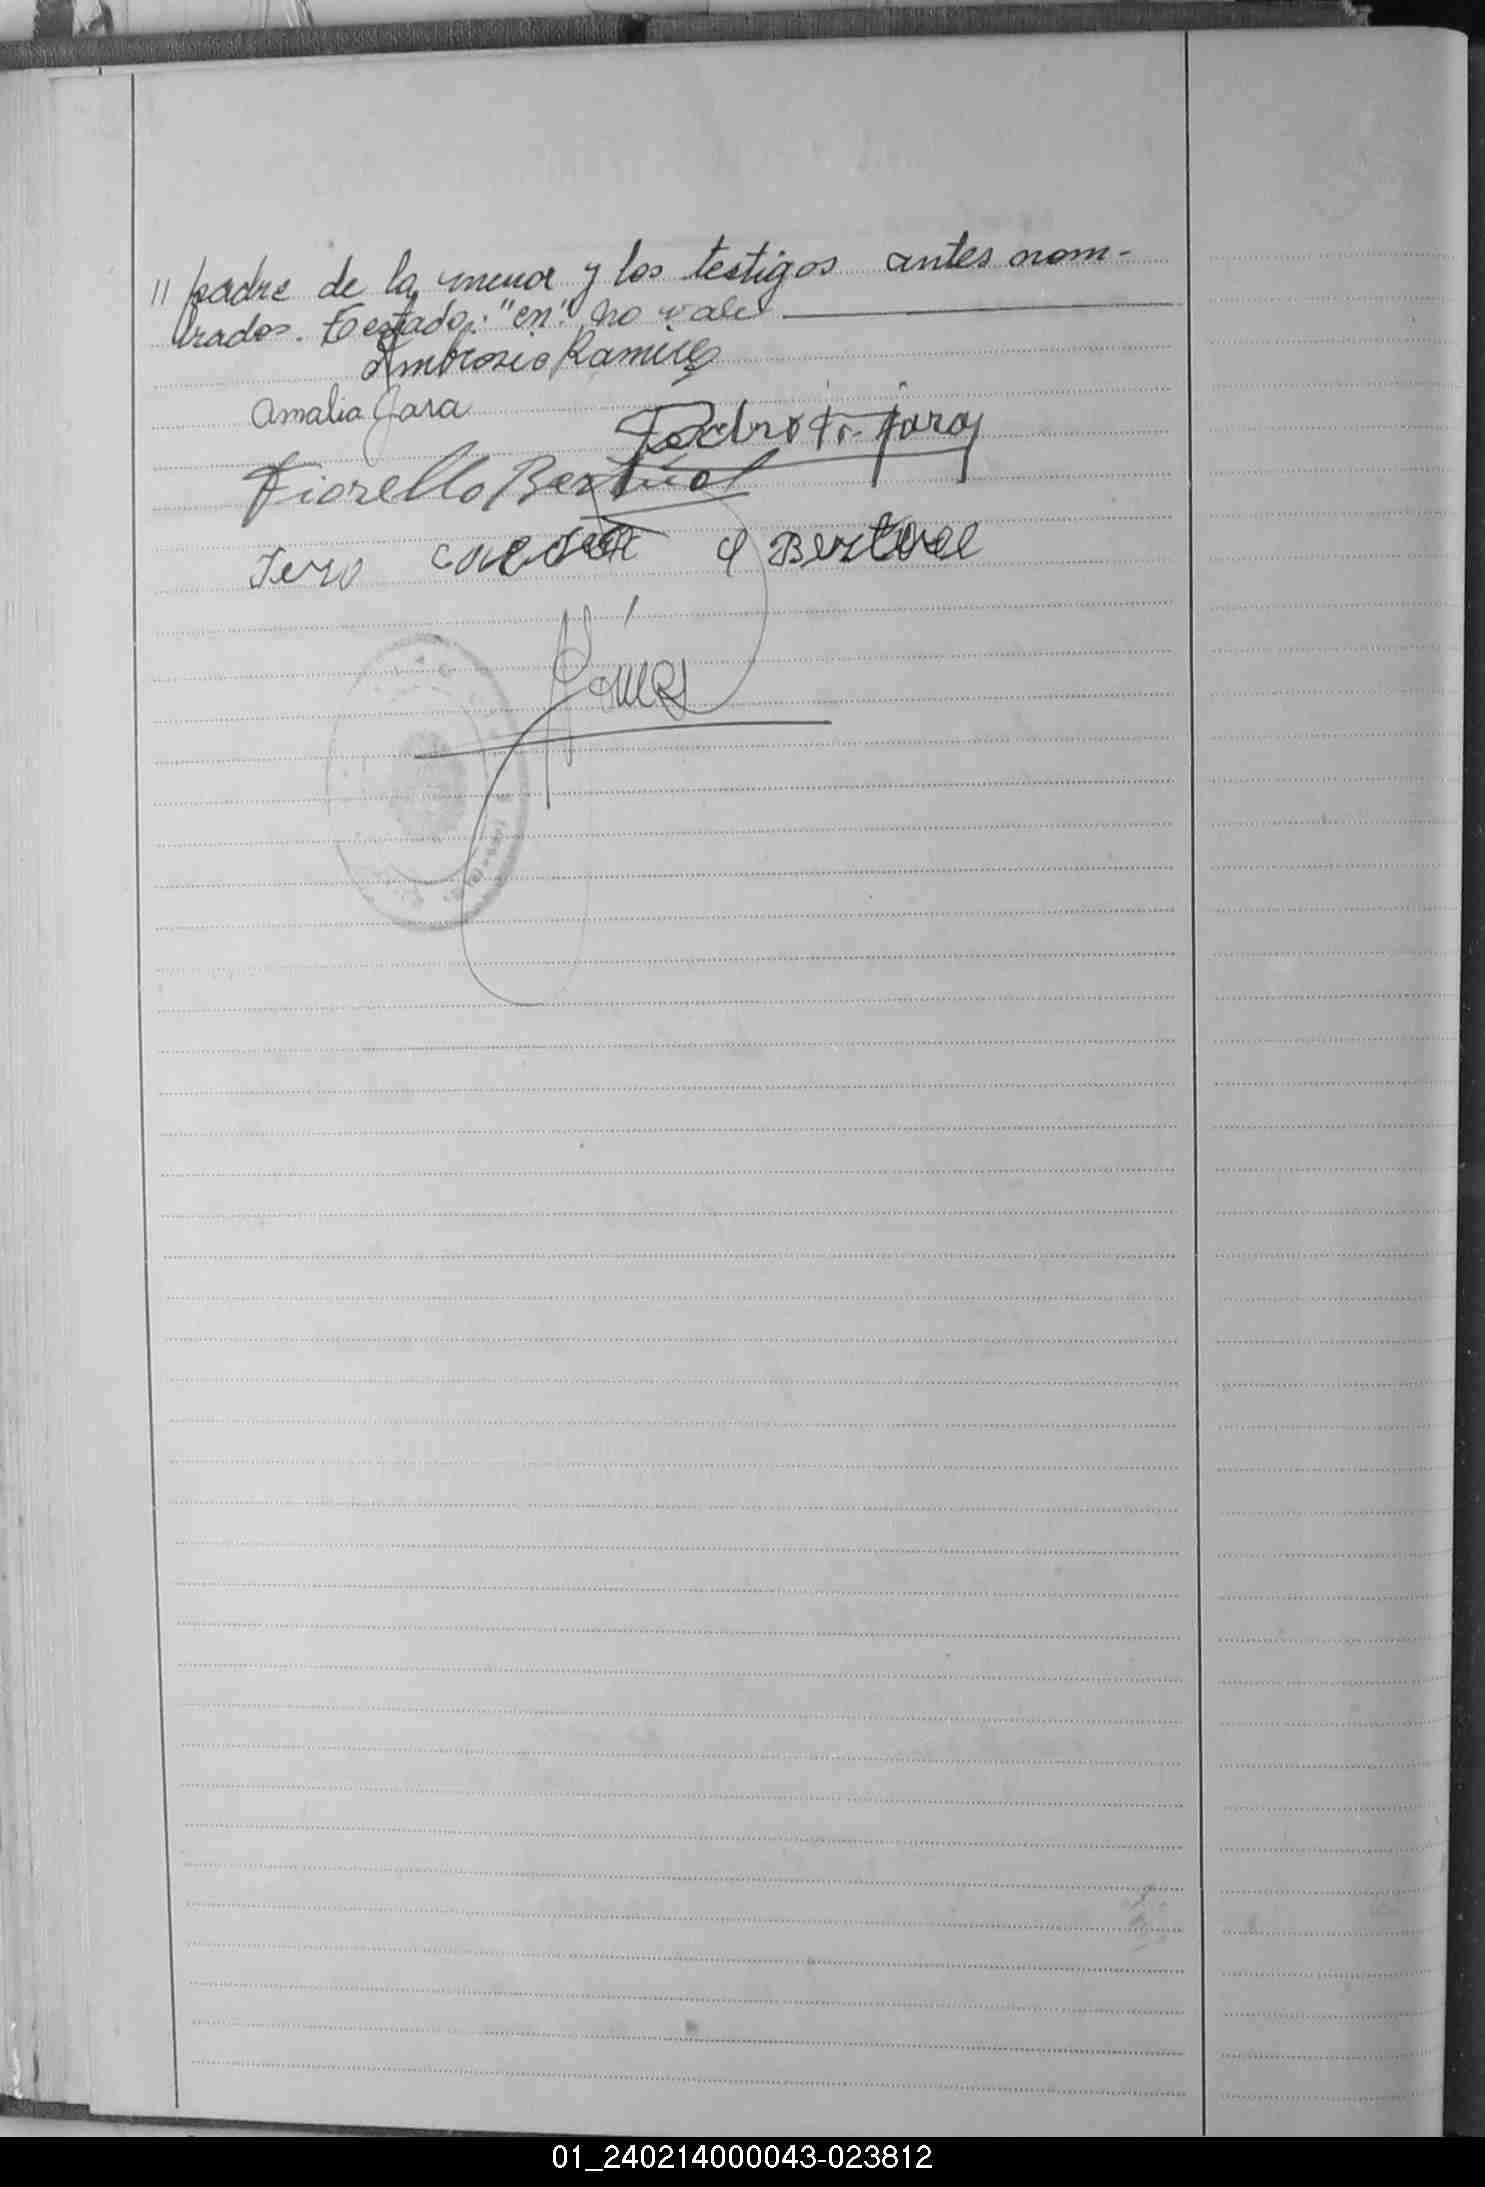 // padre de la menor y los testigos antes nom-
brados. Testado: "en" no vale
Ambrosio Ramirez
Amalia Jara
Pedro Fr. Jara
Fiorello Bertuol
d Bertole
Gómez
01_240214000043-023812